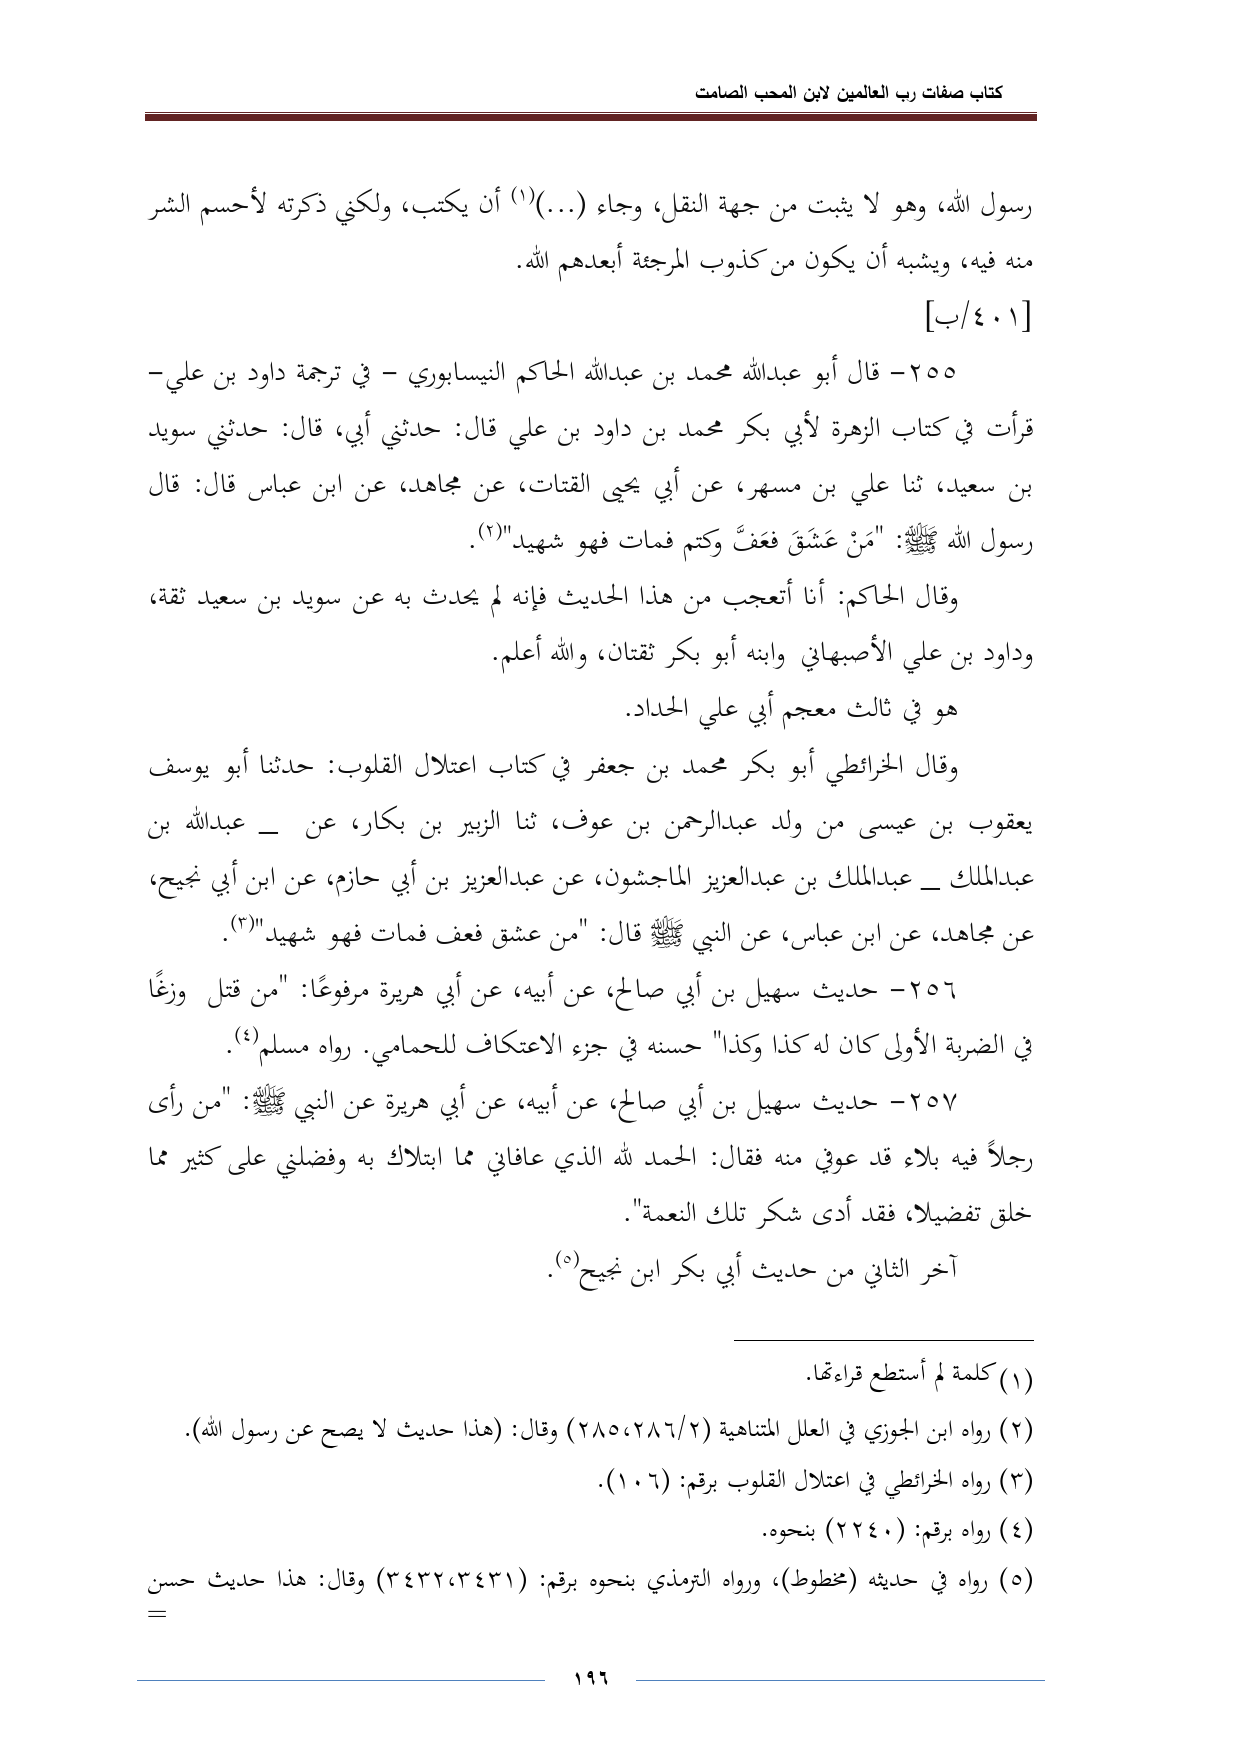 كتاب صفات رب العالمين لابن المحب الصامت
رسول الله، وهو لا يثبت من جهة النقل، وجاء (...)(١) أن يكتب، ولكني ذكرته لأحسم الشر
منه فيه، ويشبه أن يكون من كذوب المرجئة أبعدهم الله.
[٤٠١/ب]
٢٥٥- قال أبو عبدالله محمد بن عبدالله الحاكم النيسابوري – في ترجمة داود بن علي–
قرأت في كتاب الزهرة لأبي بكر محمد بن داود بن علي قال: حدثني أبي، قال: حدثني سويد
بن سعيد، ثنا علي بن مسهر، عن أبي يحيى القتات، عن مجاهد، عن ابن عباس قال: قال
رسول الله ﷺ: "مَنْ عَشَقَ فعَفَّ وكتم فمات فهو شهيد"(٢).
وقال الحاكم: أنا أتعجب من هذا الحديث فإنه لم يحدث به عن سويد بن سعيد ثقة،
وداود بن علي الأصبهاني وابنه أبو بكر ثقتان، والله أعلم.
هو في ثالث معجم أبي علي الحداد.
وقال الخرائطي أبو بكر محمد بن جعفر في كتاب اعتلال القلوب: حدثنا أبو يوسف
يعقوب بن عيسى من ولد عبدالرحمن بن عوف، ثنا الزبير بن بكار، عن _ عبدالله بن
عبدالملك _ عبدالملك بن عبدالعزيز الماجشون، عن عبدالعزيز بن أبي حازم، عن ابن أبي نجيح،
عن مجاهد، عن ابن عباس، عن النبي ﷺ قال: "من عشق فعف فمات فهو شهيد"(٣).
٢٥٦- حديث سهيل بن أبي صالح، عن أبيه، عن أبي هريرة مرفوعًا: "من قتل وزغًا
في الضربة الأولى كان له كذا وكذا" حسنه في جزء الاعتكاف للحمامي. رواه مسلم(٤).
٢٥٧- حديث سهيل بن أبي صالح، عن أبيه، عن أبي هريرة عن النبي ﷺ: "من رأى
رجلاً فيه بلاء قد عوفي منه فقال: الحمد لله الذي عافاني مما ابتلاك به وفضلني على كثير مما
خلق تفضيلا، فقد أدى شكر تلك النعمة".
آخر الثاني من حديث أبي بكر ابن نجيح(٥).
(١) كلمة لم أستطع قراءتها.
(٢) رواه ابن الجوزي في العلل المتناهية (٢٨٥،٢٨٦/٢) وقال: (هذا حديث لا يصح عن رسول الله).
(٣) رواه الخرائطي في اعتلال القلوب برقم: (١٠٦).
(٤) رواه برقم: (٢٢٤٠) بنحوه.
(٥) رواه في حديثه (مخطوط)، ورواه الترمذي بنحوه برقم: (٣٤٣٢،٣٤٣١) وقال: هذا حديث حسن
=
١٩٦